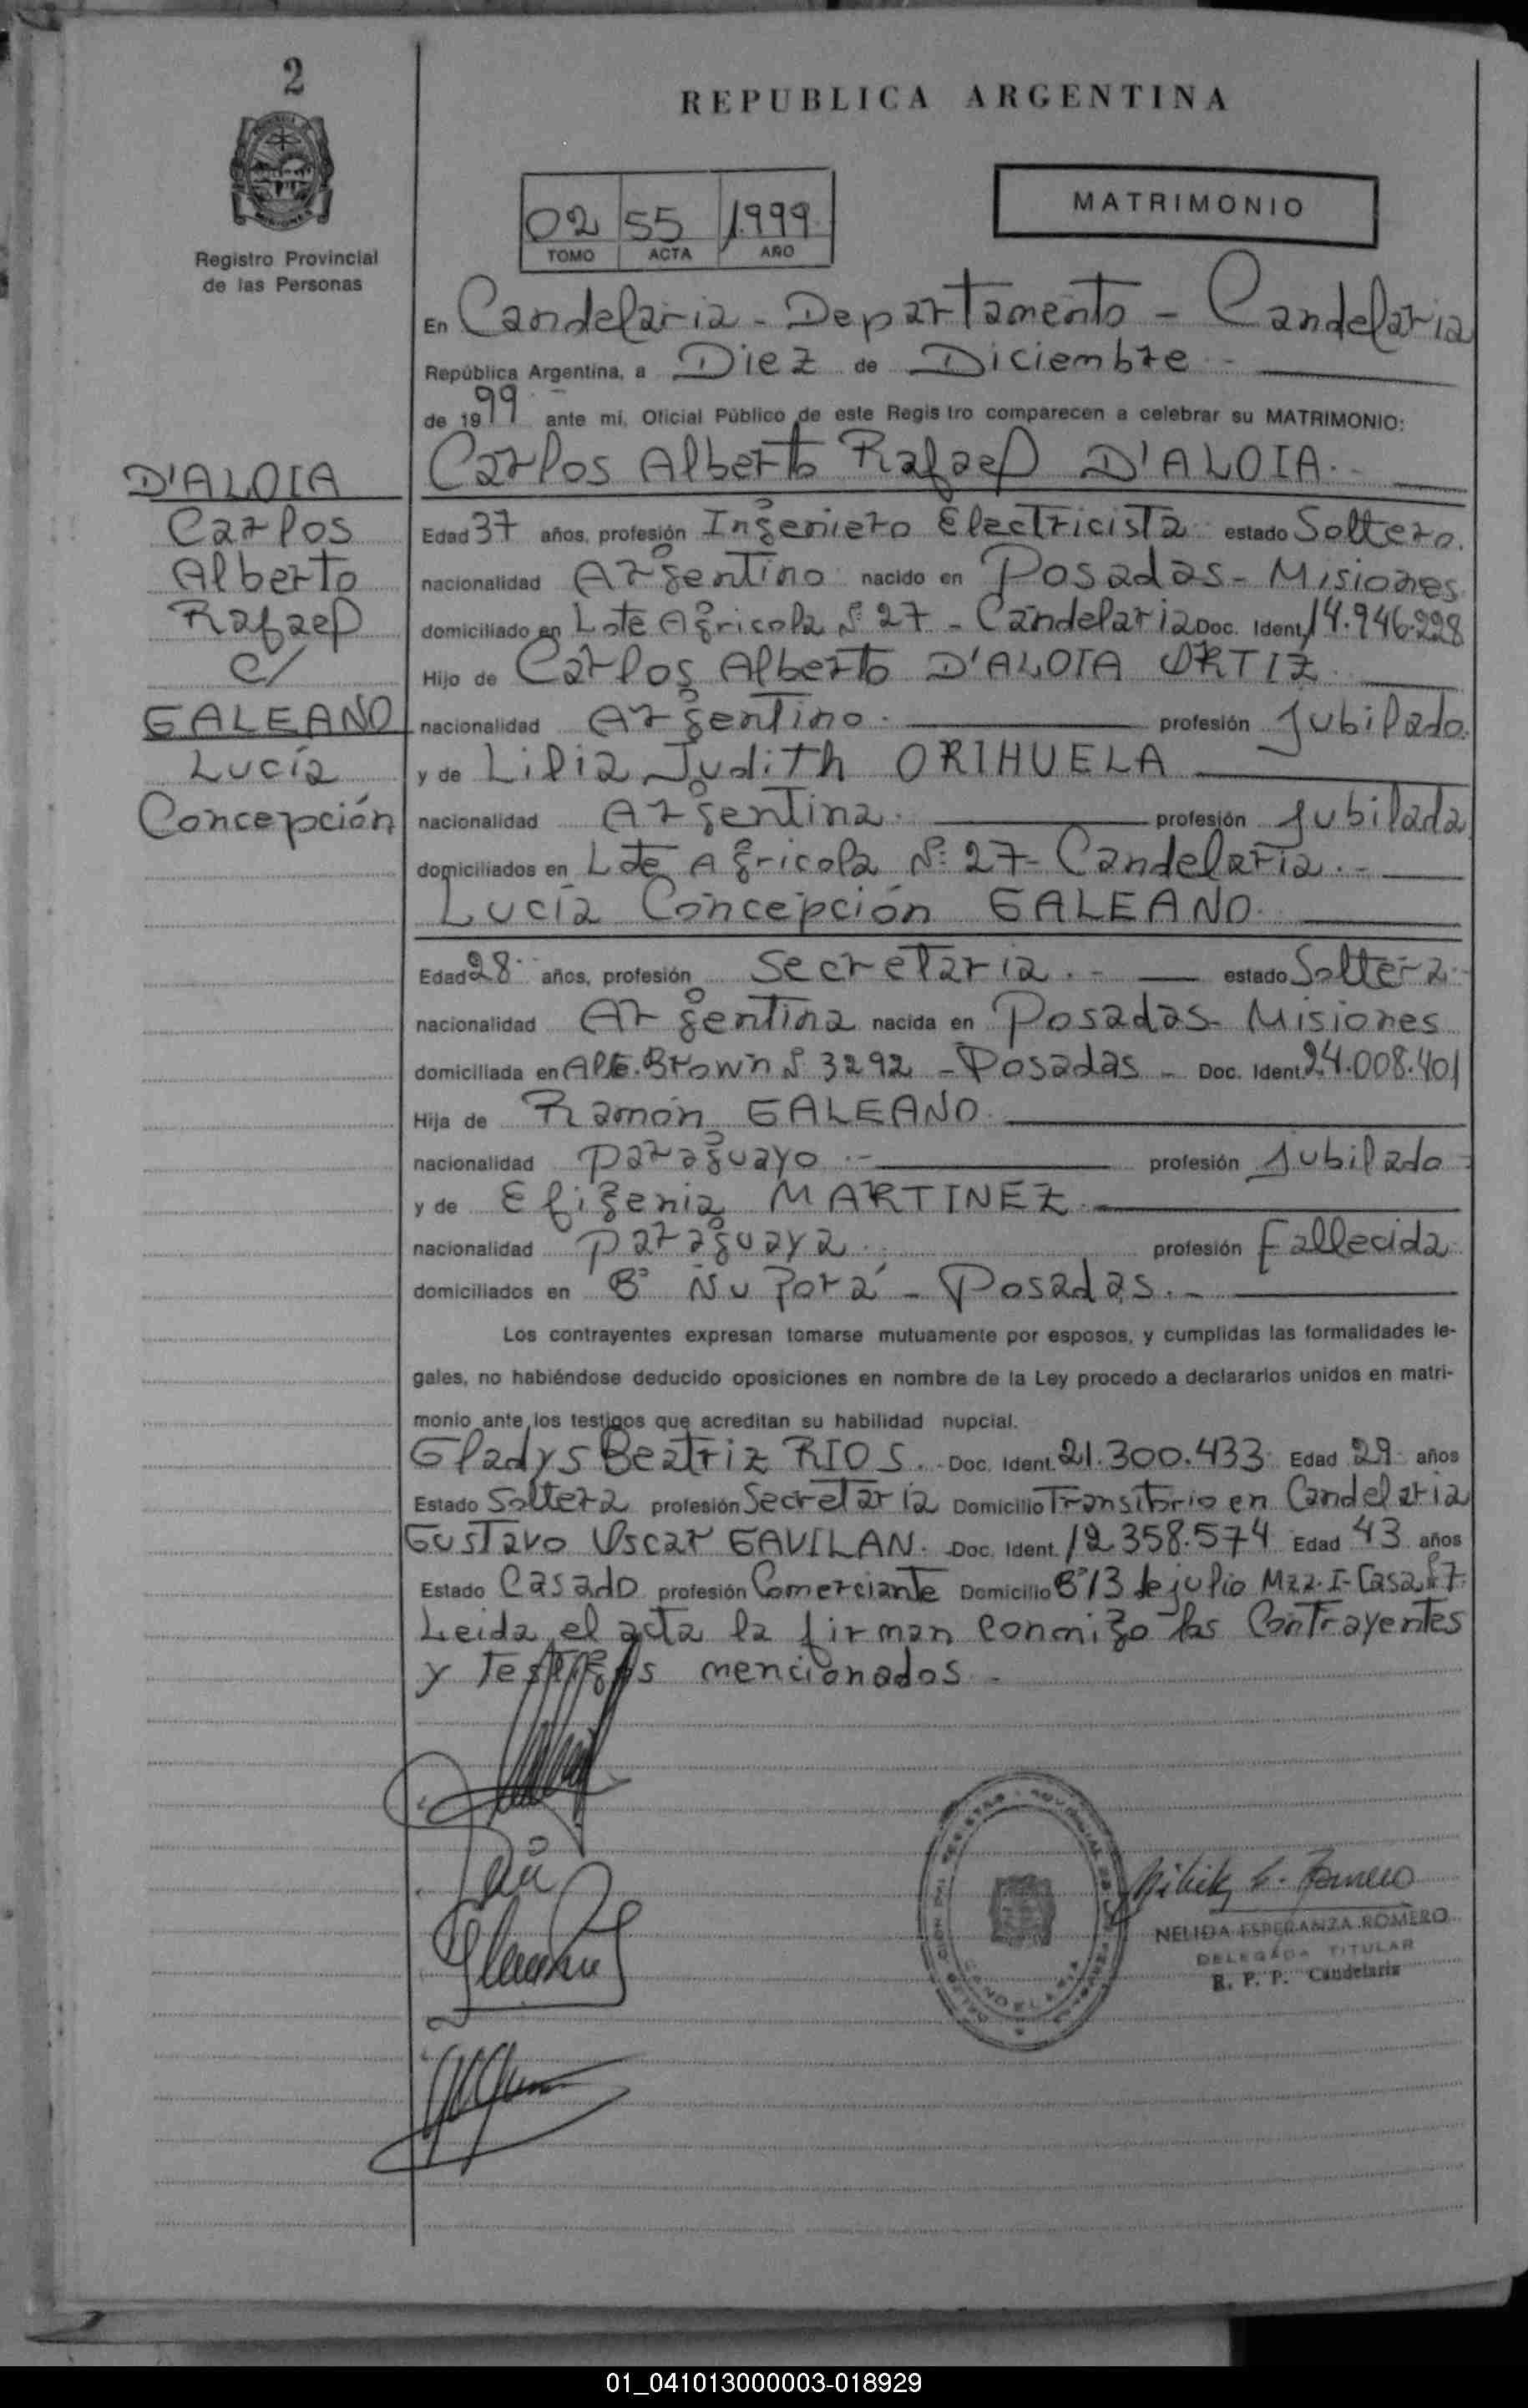 2
REPUBLICA ARGENTINA
Registro Provincial
de las Personas
02 55 1.999
TOMO ACTA AÑO
MATRIMONIO
En Candelaria - Departamento - Candelaria
República Argentina, a Diez de Diciembre
de 1999 ante mi, Oficial Público de este Regis tro comparecen a celebrar su MATRIMONIO:
Carlos Alberto Rafael D'ALOIA.
D'ALOIA
Carlos
Alberto
Rafael
C/
GALEANO
Lucía
Concepción
Edad 37 años, profesión Ingeniero Electricista estado Soltero.
nacionalidad Argentino nacido en Posadas - Misiones
domiciliado en Lote Agricola Nº 27 - Candelaria Doc. Ident. 14.946.228
Hijo de Carlos Alberto D'ALOIA ORTIZ
nacionalidad Argentino. profesión Jubilado.
y de Lilia Judith ORIHUELA
nacionalidad Argentina. profesión Jubilada
domiciliados en Lote Agricola Nº 27 - Candelaria.-
Lucía Concepción GALEANO.
Edad 28 años, profesión Secretaria.- estado Soltera.
nacionalidad Argentina nacida en Posadas - Misiones
domiciliada en Alte. Brown Nº 3292 - Posadas - Doc. Ident. 24.008.401
Hija de Ramón GALEANO.
nacionalidad paraguayo.- profesión Jubilado
y de Efigenia MARTINEZ.
nacionalidad paraguaya. profesión Fallecida
domiciliados en Bº Ñu Porá - Posadas.-
Los contrayentes expresan tomarse mutuamente por esposos, y cumplidas las formalidades le-
gales, no habiéndose deducido oposiciones en nombre de la Ley procedo a declararlos unidos en matri-
monio ante los testigos que acreditan su habilidad nupcial.
Gladys Beatriz RIOS. Doc. Ident. 21.300.433 Edad 29 años
Estado Soltera profesión Secretaria Domicilio Transitorio en Candelaria
Gustavo Oscar GAVILAN. Doc. Ident. 12.358.574 Edad 43 años
Estado Casado profesión Comerciante Domicilio Bº 13 de julio Mzz. I - Casa Nº 7.
Leida el acta la firman conmigo los Contrayentes
y testigos mencionados.
CANDELARIA
NELIDA ESPERANZA ROMERO
DELEGADA TITULAR
R. P. P. Candelaria
01_041013000003-018929